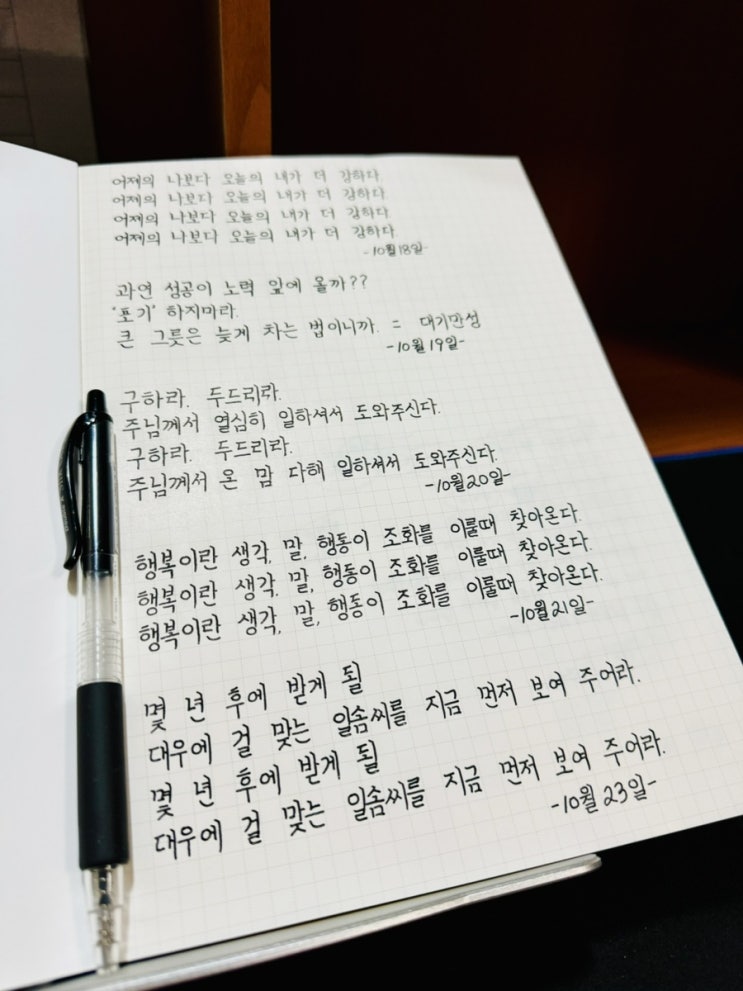 어제의 나보다 오늘의 내가 더 강하다
어제의 나보다 오늘의 내가 더 강하다
어제의 나보다 오늘의 내가 더 강하다
어제의 나보다 오늘의 내가 더 강하다
-10월18일-
과연 성공이 노력 앞에 올까??
'포기' 하지마라.
큰 그릇은 늦게 차는 법이니까. = 대기만성
-10월19일-
구하라. 두드리라.
주님께서 열심히 일하셔서 도와주신다.
구하라. 두드리라.
주님께서 온 맘 다해 일하셔서 도와주신다.
-10월20일-
행복이란 생각, 말, 행동이 조화를 이룰때 찾아온다.
행복이란 생각, 말, 행동이 조화를 이룰때 찾아온다.
행복이란 생각, 말, 행동이 조화를 이룰때 찾아온다.
-10월21일-
몇 년 후에 받게 될
대우에 걸 맞는 일솜씨를 지금 먼저 보여 주어라.
몇 년 후에 받게 될
대우에 걸 맞는 일솜씨를 지금 먼저 보여 주어라.
-10월 23일-